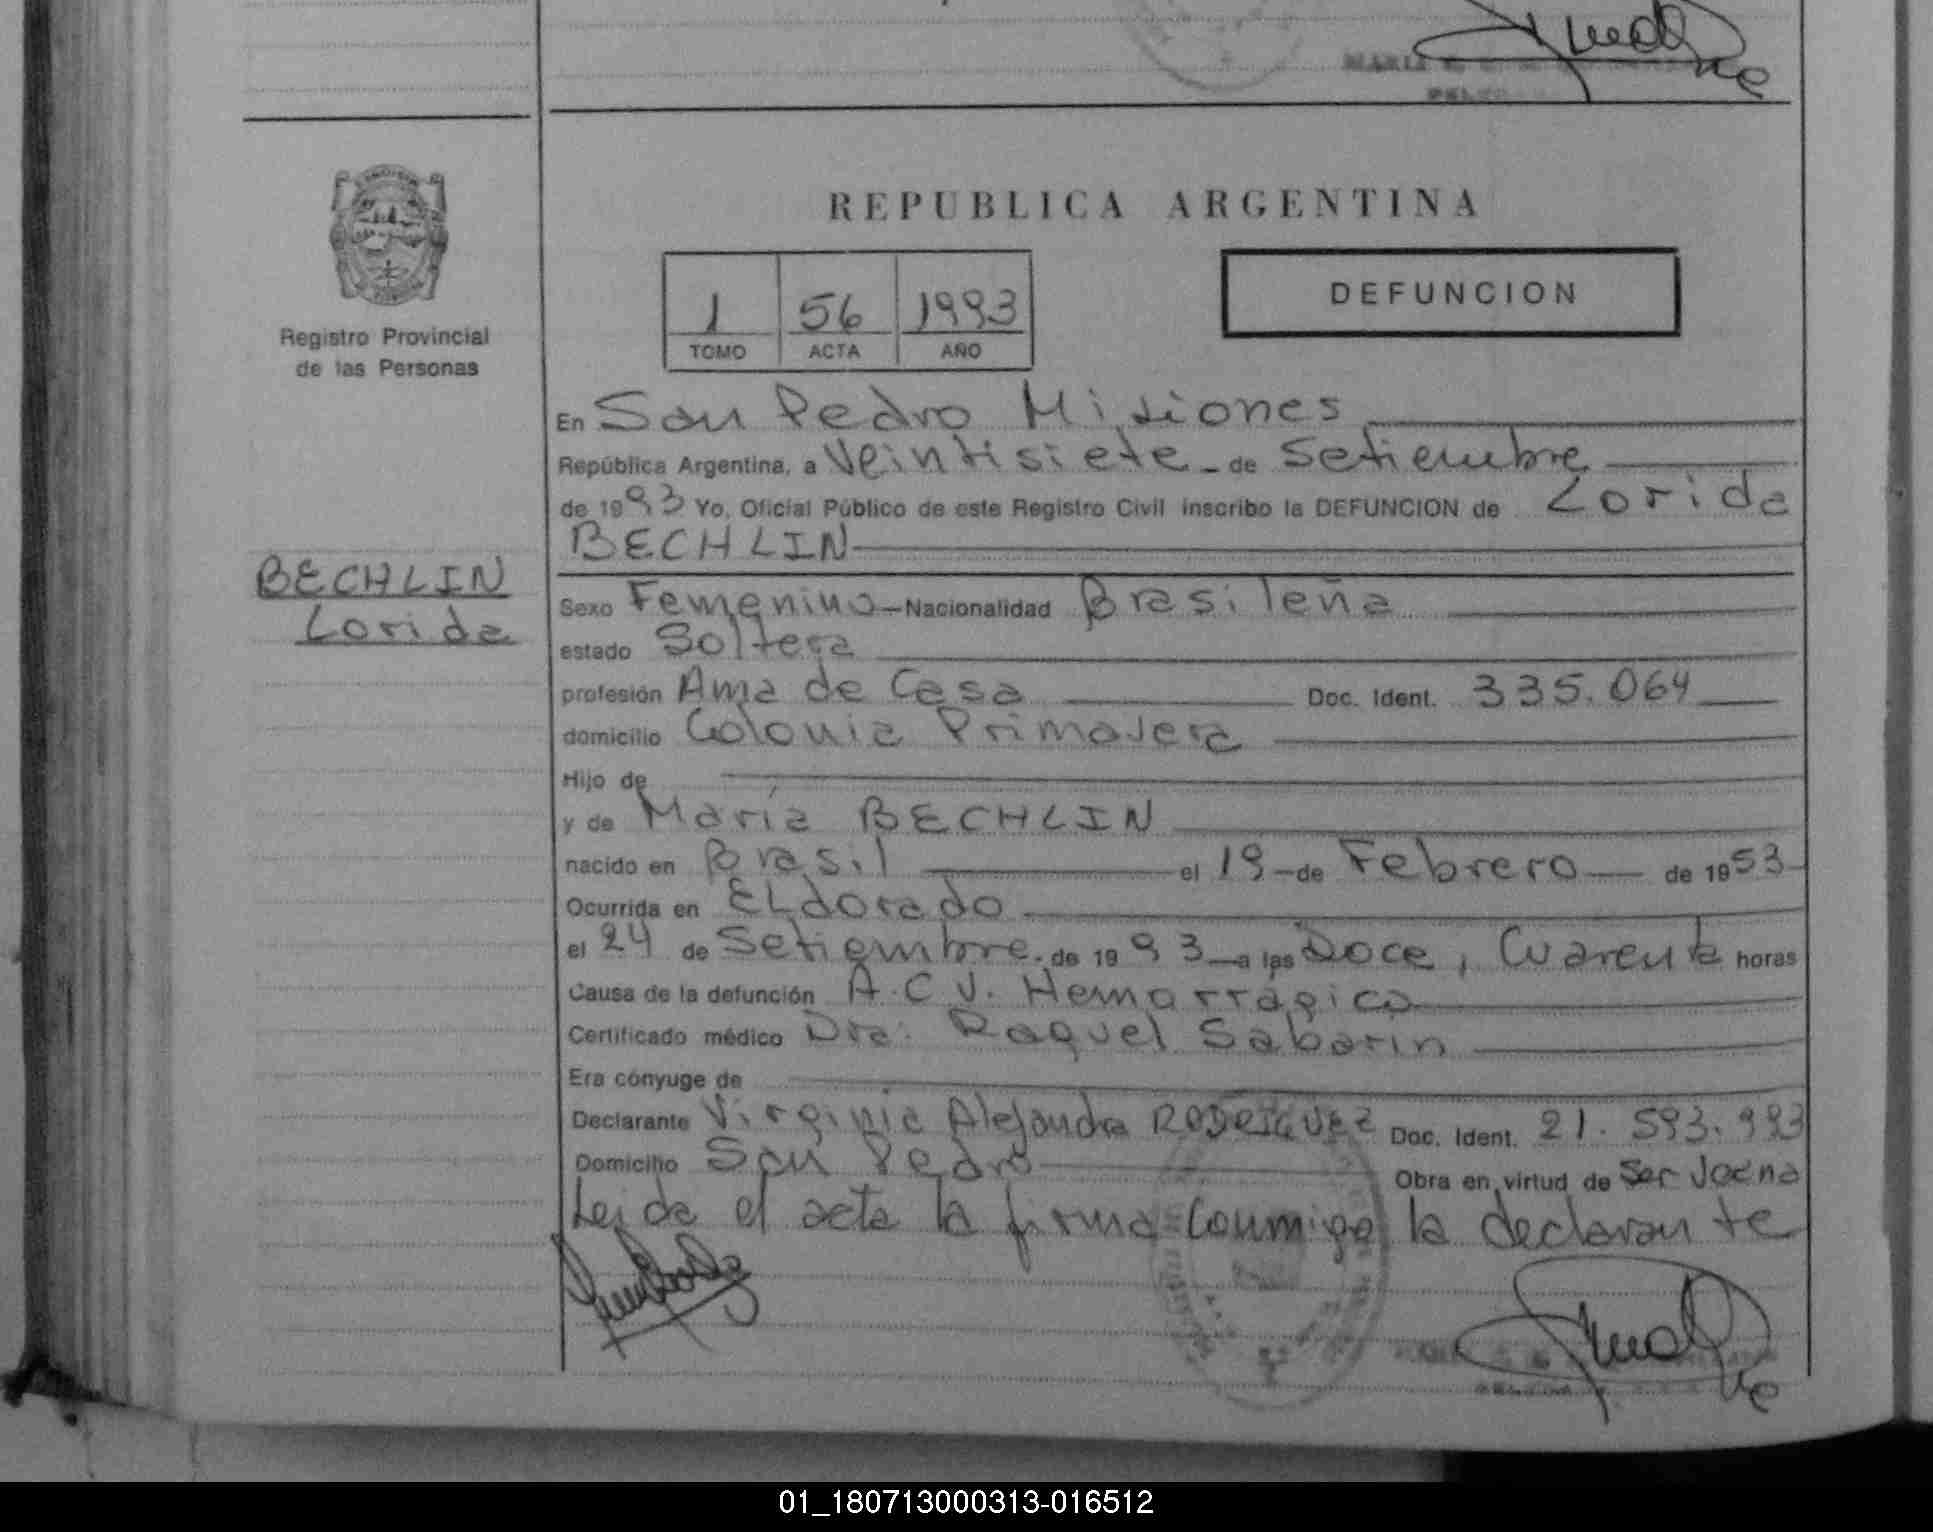 REPUBLICA ARGENTINA
1 56 1993
TOMO ACTA AÑO
DEFUNCION
Registro Provincial
de las Personas
En San Pedro Misiones
República Argentina, a Veintisiete - de Setiembre
de 1993 Yo, Oficial Público de este Registro Civil inscribo la DEFUNCION de Lorida
BECHLIN
BECHLIN
Lorida
Sexo Femenino - Nacionalidad Brasileña
estado Soltera
profesión Ama de Casa Doc. Ident. 335.064
domicilio Colonia Primavera
Hijo de
y de María BECHLIN
nacido en Brasil el 19 - de Febrero de 1953
Ocurrida en ELdorado
el 24 de Setiembre. de 1993 a las Doce, Cuarenta horas
Causa de la defunción A.C.V. Hemorrágico
Certificado médico Dra: Raquel Sabarin
Era cónyuge de
Declarante Virginia Alejandra RODRIGUEZ Doc. Ident. 21.593.993
Domicilio San Pedro Obra en virtud de Ser
Leida el acta la firma Conmigo la declarante
01_180713000313-016512